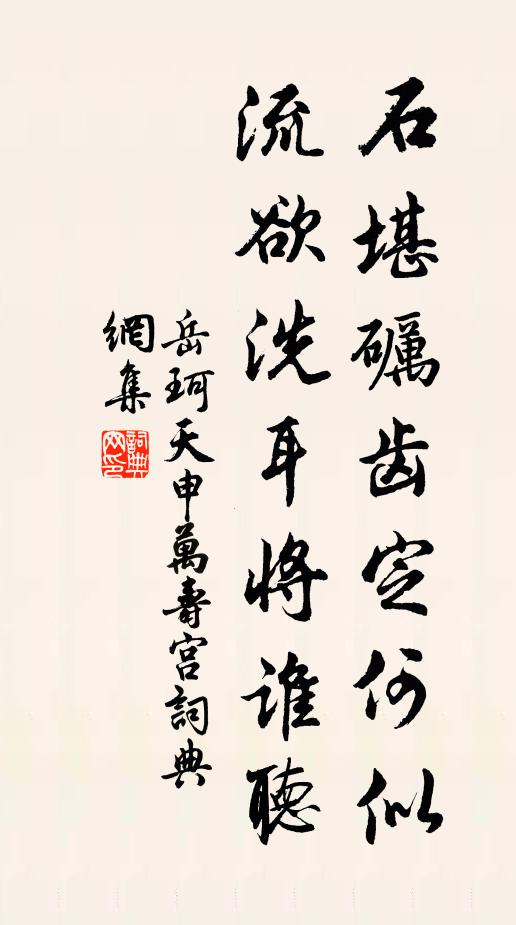 石堪礪齿定何似
流欲洗耳將誰聽
岳珂天申萬壽宫詞典
網集
詞典
网印